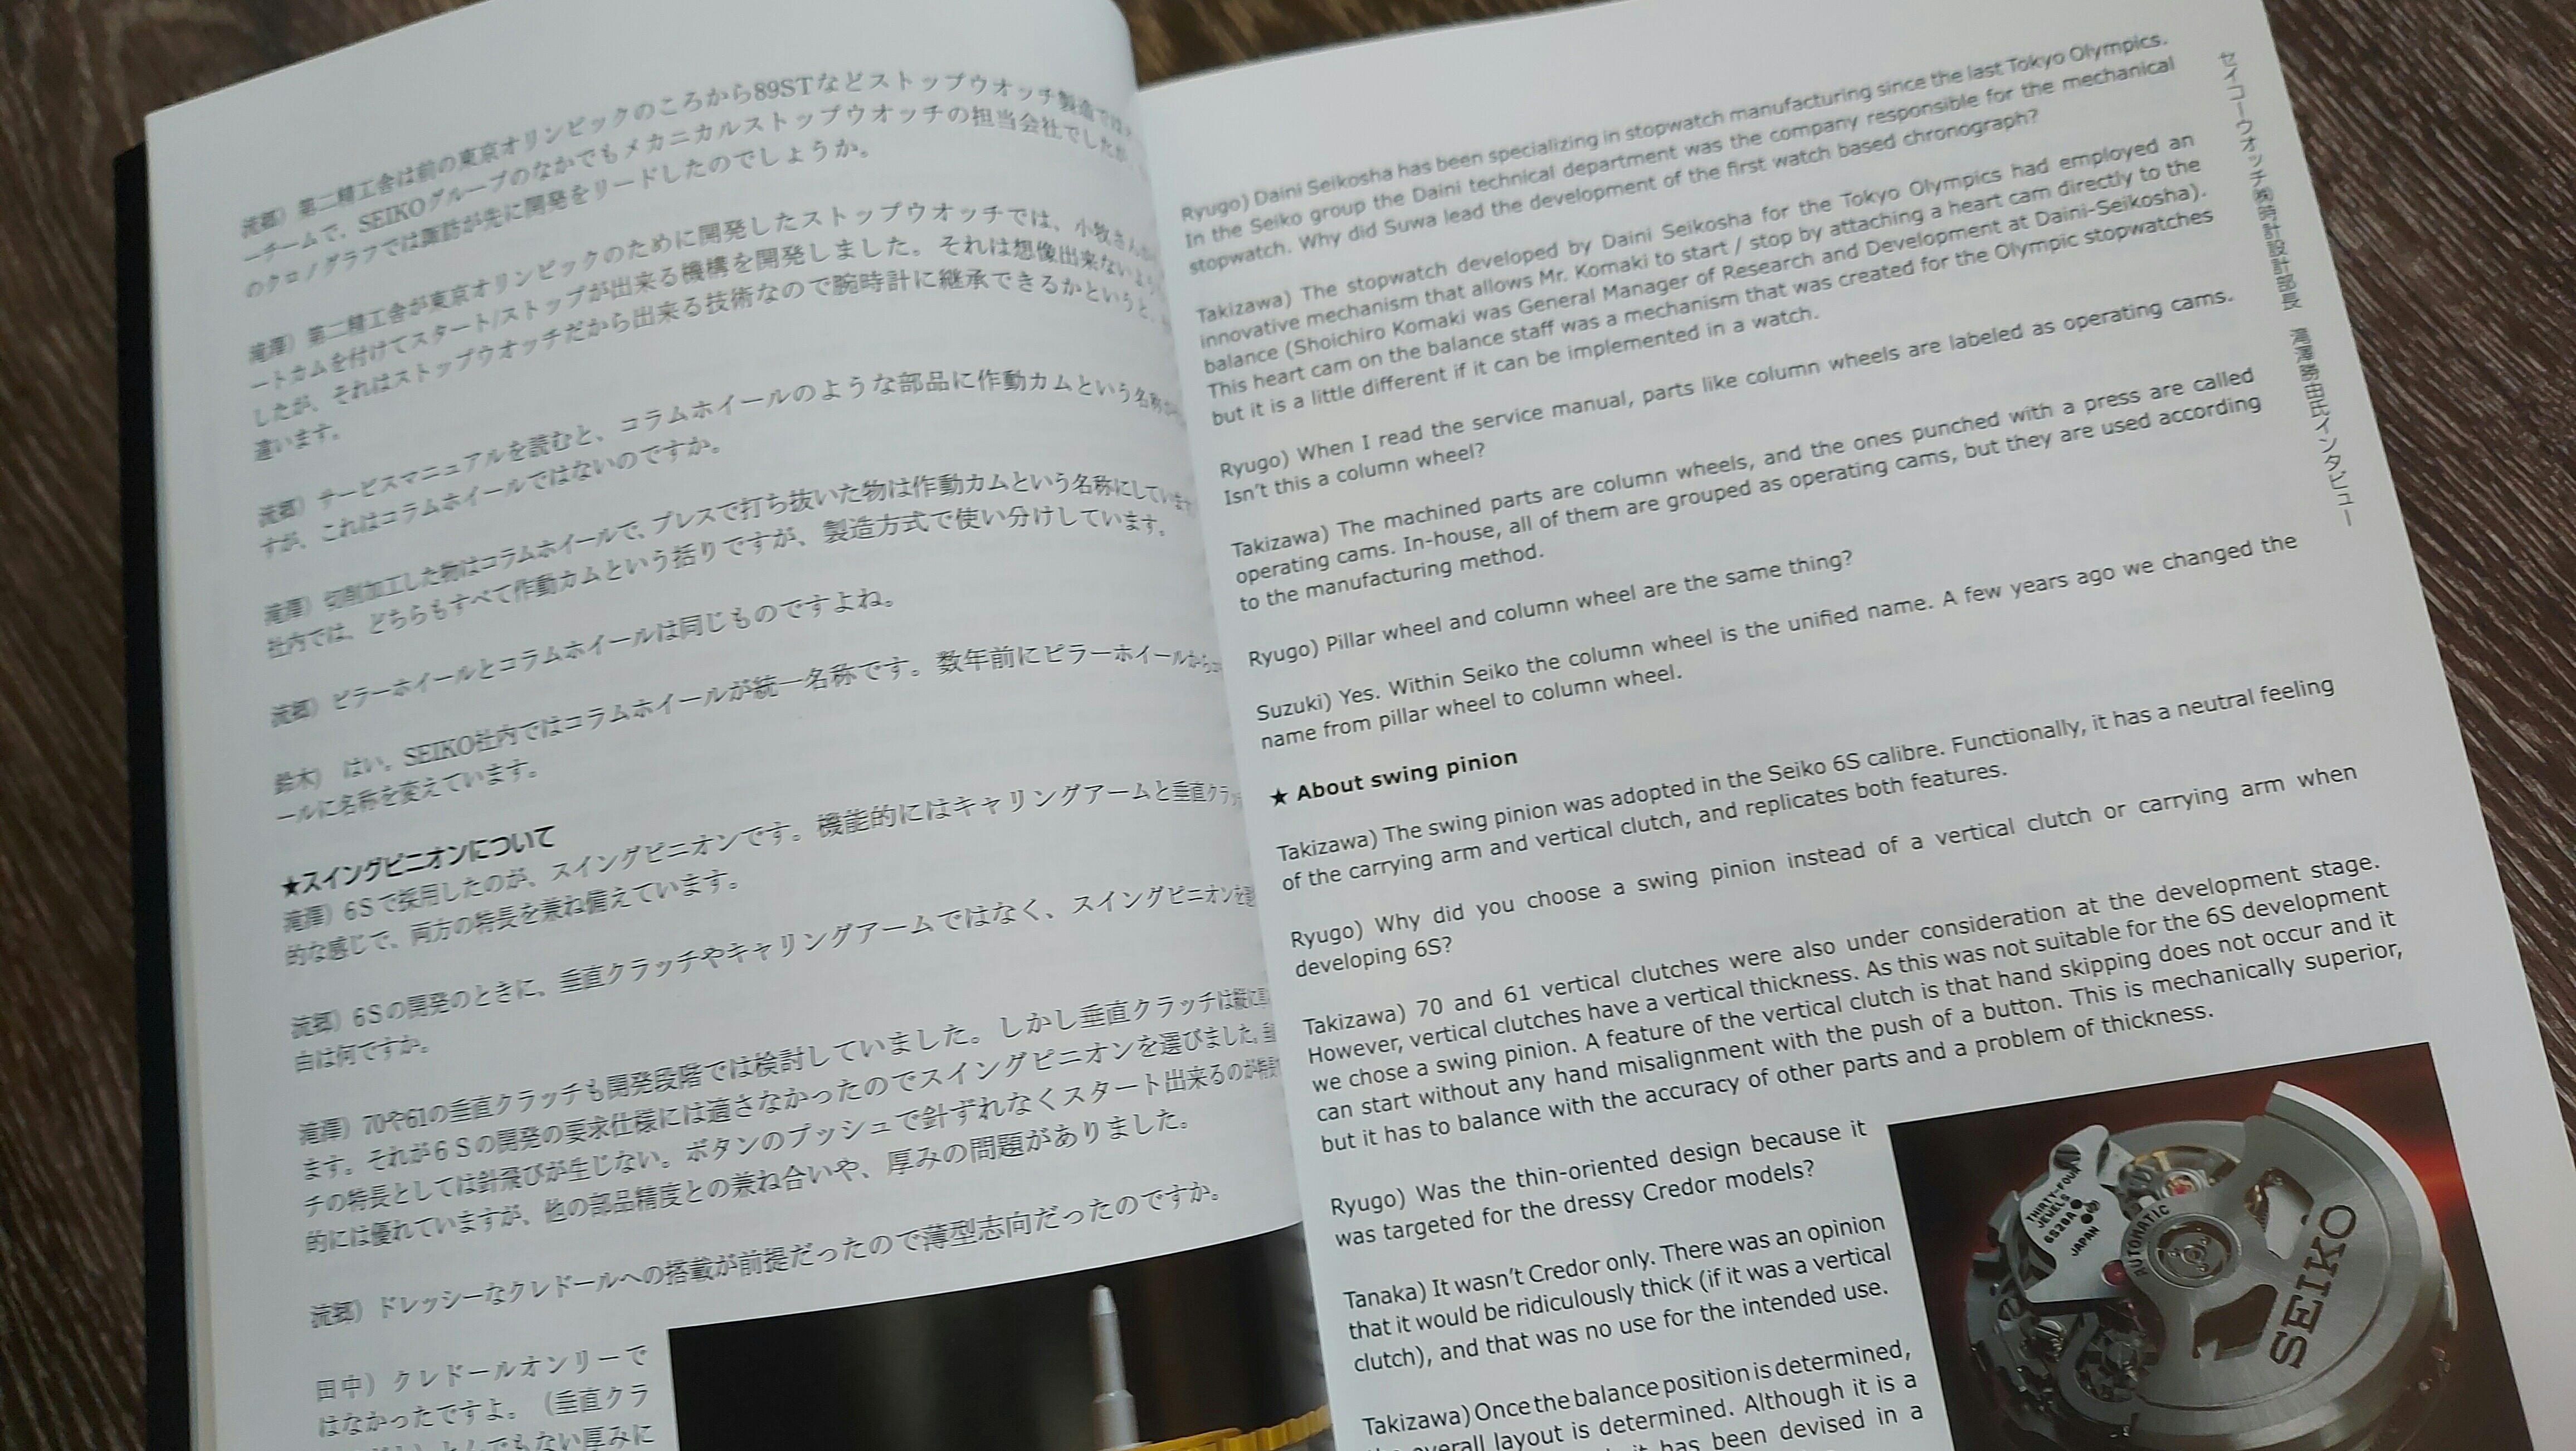 流郷）第二精工舎は前の東京オリンピックのころから89STなどストップウオッチ製造では
ーチームで、SEIKOグループのなかでもメカニカルストップウオッチの担当会社でしたが、
のクロノグラフでは諏訪が先に開発をリードしたのでしょうか。
滝澤）第二精工舎が東京オリンピックのために開発したストップウオッチでは、小牧さんが
ートカムを付けてスタート/ストップが出来る機構を開発しました。それは想像出来ないよう
したが、それはストップウオッチだから出来る技術なので腕時計に継承できるかというと、
違います。
流郷）サービスマニュアルを読むと、コラムホイールのような部品に作動カムという名称が
すが、これはコラムホイールではないのですか。
滝澤）切削加工した物はコラムホイールで、プレスで打ち抜いた物は作動カムという名称にしています
社内では、どちらもすべて作動カムという括りですが、製造方式で使い分けしています。
流郷）ピラーホイールとコラムホイールは同じものですよね。
鈴木） はい。SEIKO社内ではコラムホイールが統一名称です。数年前にピラーホイールから
ールに名称を変えています。
★スイングピニオンについて
滝澤）6Sで採用したのが、スイングピニオンです。機能的にはキャリングアームと垂直クラッ
的な感じで、両方の特長を兼ね備えています。
流郷）6Sの開発のときに、垂直クラッチやキャリングアームではなく、スイングピニオンを
由は何ですか。
滝澤）70や61の垂直クラッチも開発段階では検討していました。しかし垂直クラッチは縦に
ます。それが6Sの開発の要求仕様には適さなかったのでスイングピニオンを選びました。
チの特長としては針飛びが生じない。ボタンのプッシュで針ずれなくスタート出来るのが特長
的には優れていますが、他の部品精度との兼ね合いや、厚みの問題がありました。
流郷）ドレッシーなクレドールへの搭載が前提だったので薄型志向だったのですか。
田中）クレドールオンリーで
はなかったですよ。（垂直クラ
とんでもない厚みに
Ryugo) Daini Seikosha has been specializing in stopwatch manufacturing since the last Tokyo Olympics.
In the Seiko group the Daini technical department was the company responsible for the mechanical
stopwatch. Why did Suwa lead the development of the first watch based chronograph?
Takizawa) The stopwatch developed by Daini Seikosha for the Tokyo Olympics had employed an
innovative mechanism that allows Mr. Komaki to start / stop by attaching a heart cam directly to the
balance (Shoichiro Komaki was General Manager of Research and Development at Daini-Seikosha).
This heart cam on the balance staff was a mechanism that was created for the Olympic stopwatches
but it is a little different if it can be implemented in a watch.
Ryugo) When I read the service manual, parts like column wheels are labeled as operating cams.
Isn't this a column wheel?
Takizawa) The machined parts are column wheels, and the ones punched with a press are called
operating cams. In-house, all of them are grouped as operating cams, but they are used according
to the manufacturing method.
Ryugo) Pillar wheel and column wheel are the same thing?
Suzuki) Yes. Within Seiko the column wheel is the unified name. A few years ago we changed the
name from pillar wheel to column wheel.
★ About swing pinion
Takizawa) The swing pinion was adopted in the Seiko 6S calibre. Functionally, it has a neutral feeling
of the carrying arm and vertical clutch, and replicates both features.
Ryugo) Why did you choose a swing pinion instead of a vertical clutch or carrying arm when
developing 6S?
Takizawa) 70 and 61 vertical clutches were also under consideration at the development stage.
However, vertical clutches have a vertical thickness. As this was not suitable for the 6S development
we chose a swing pinion. A feature of the vertical clutch is that hand skipping does not occur and it
can start without any hand misalignment with the push of a button. This is mechanically superior,
but it has to balance with the accuracy of other parts and a problem of thickness.
Ryugo) Was the thin-oriented design because it
was targeted for the dressy Credor models?
Tanaka) It wasn't Credor only. There was an opinion
that it would be ridiculously thick (if it was a vertical
clutch), and that was no use for the intended use.
Takizawa) Once the balance position is determined,
overall layout is determined. Although it is a
it has been devised in a
THIRTY-FOUR
JEWELS
6S28A
JAPAN
AUTOMATIC
SEIKO
セイコーウオッチ㈱ 時計設計部長 滝澤勝由氏インタビュー